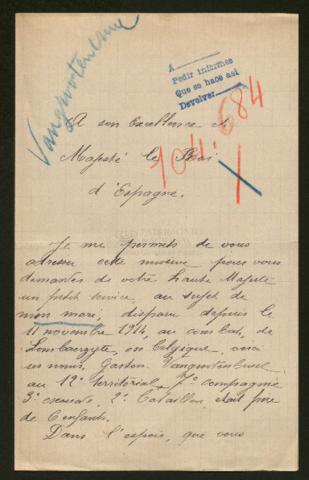 Vangrootenbruel
A
Pedir informes
Que se hace así
Devolver
104.684
1
A son Excellence et
Majesté le Roi
d'Espagne.
Je me permets de vous
adresser cette missive pour vous
demander de votre haute Majesté
un petit service, au sujet de
mon mari, disparu depuis le
11 novembre 1914, au combat, de
Lombaerzyte, en Belgique, voici
ses noms, Gaston Vangrootenbruel
au 12e territorial, 7e compagnie
3e escouade, 2e Bataillon était père
de 6 enfants.
Dans l'espoir, que vous